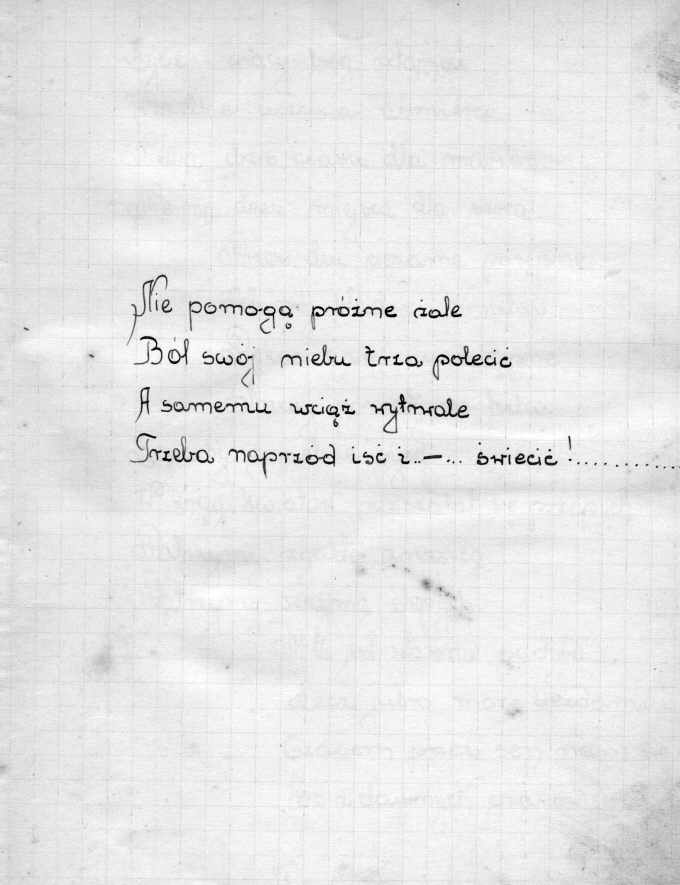 Nie pomogą próżne żale
Ból swój niebu trza polecić
A samemu wciąż wytrwale
Trzeba naprzód iść i..–... świecić!............